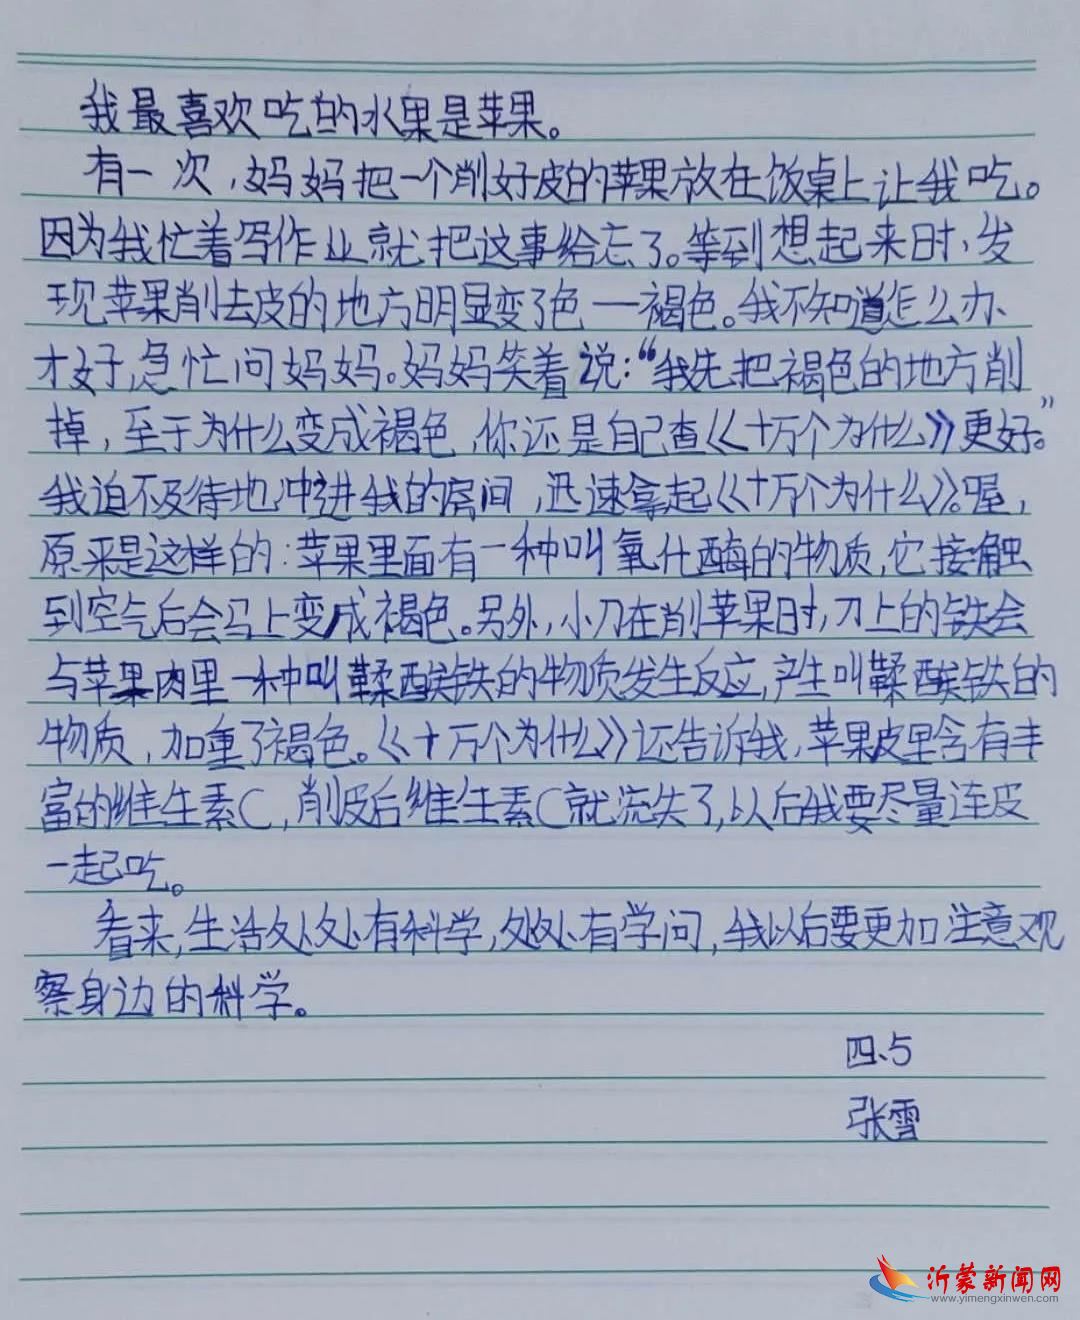 我最喜欢吃的水果是苹果。
有一次，妈妈把一个削好皮的苹果放在饭桌上让我吃。
因为我忙着写作业就把这事给忘了。等到想起来时，发
现苹果削去皮的地方明显变了色——褐色。我不知道怎么办
才好，急忙问妈妈。妈妈笑着说：“我先把褐色的地方削
掉，至于为什么变成褐色，你还是自己查《十万个为什么》更好。”
我迫不及待地冲进我的房间，迅速拿起《十万个为什么》。喔，
原来是这样的：苹果里面有一种叫氧化酶的物质，它接触
到空气后会马上变成褐色。另外，小刀在削苹果时，刀上的铁会
与苹果肉里一种叫鞣酸铁的物质发生反应，产生叫鞣酸铁的
物质，加重了褐色。《十万个为什么》还告诉我，苹果皮里含有丰
富的维生素C，削皮后维生素C就流失了，以后我要尽量连皮
一起吃。
看来，生活处处有科学，处处有学问，我以后要更加注意观
察身边的科学。
四、5
张雪
沂蒙新闻网
www.yimengxinwen.com